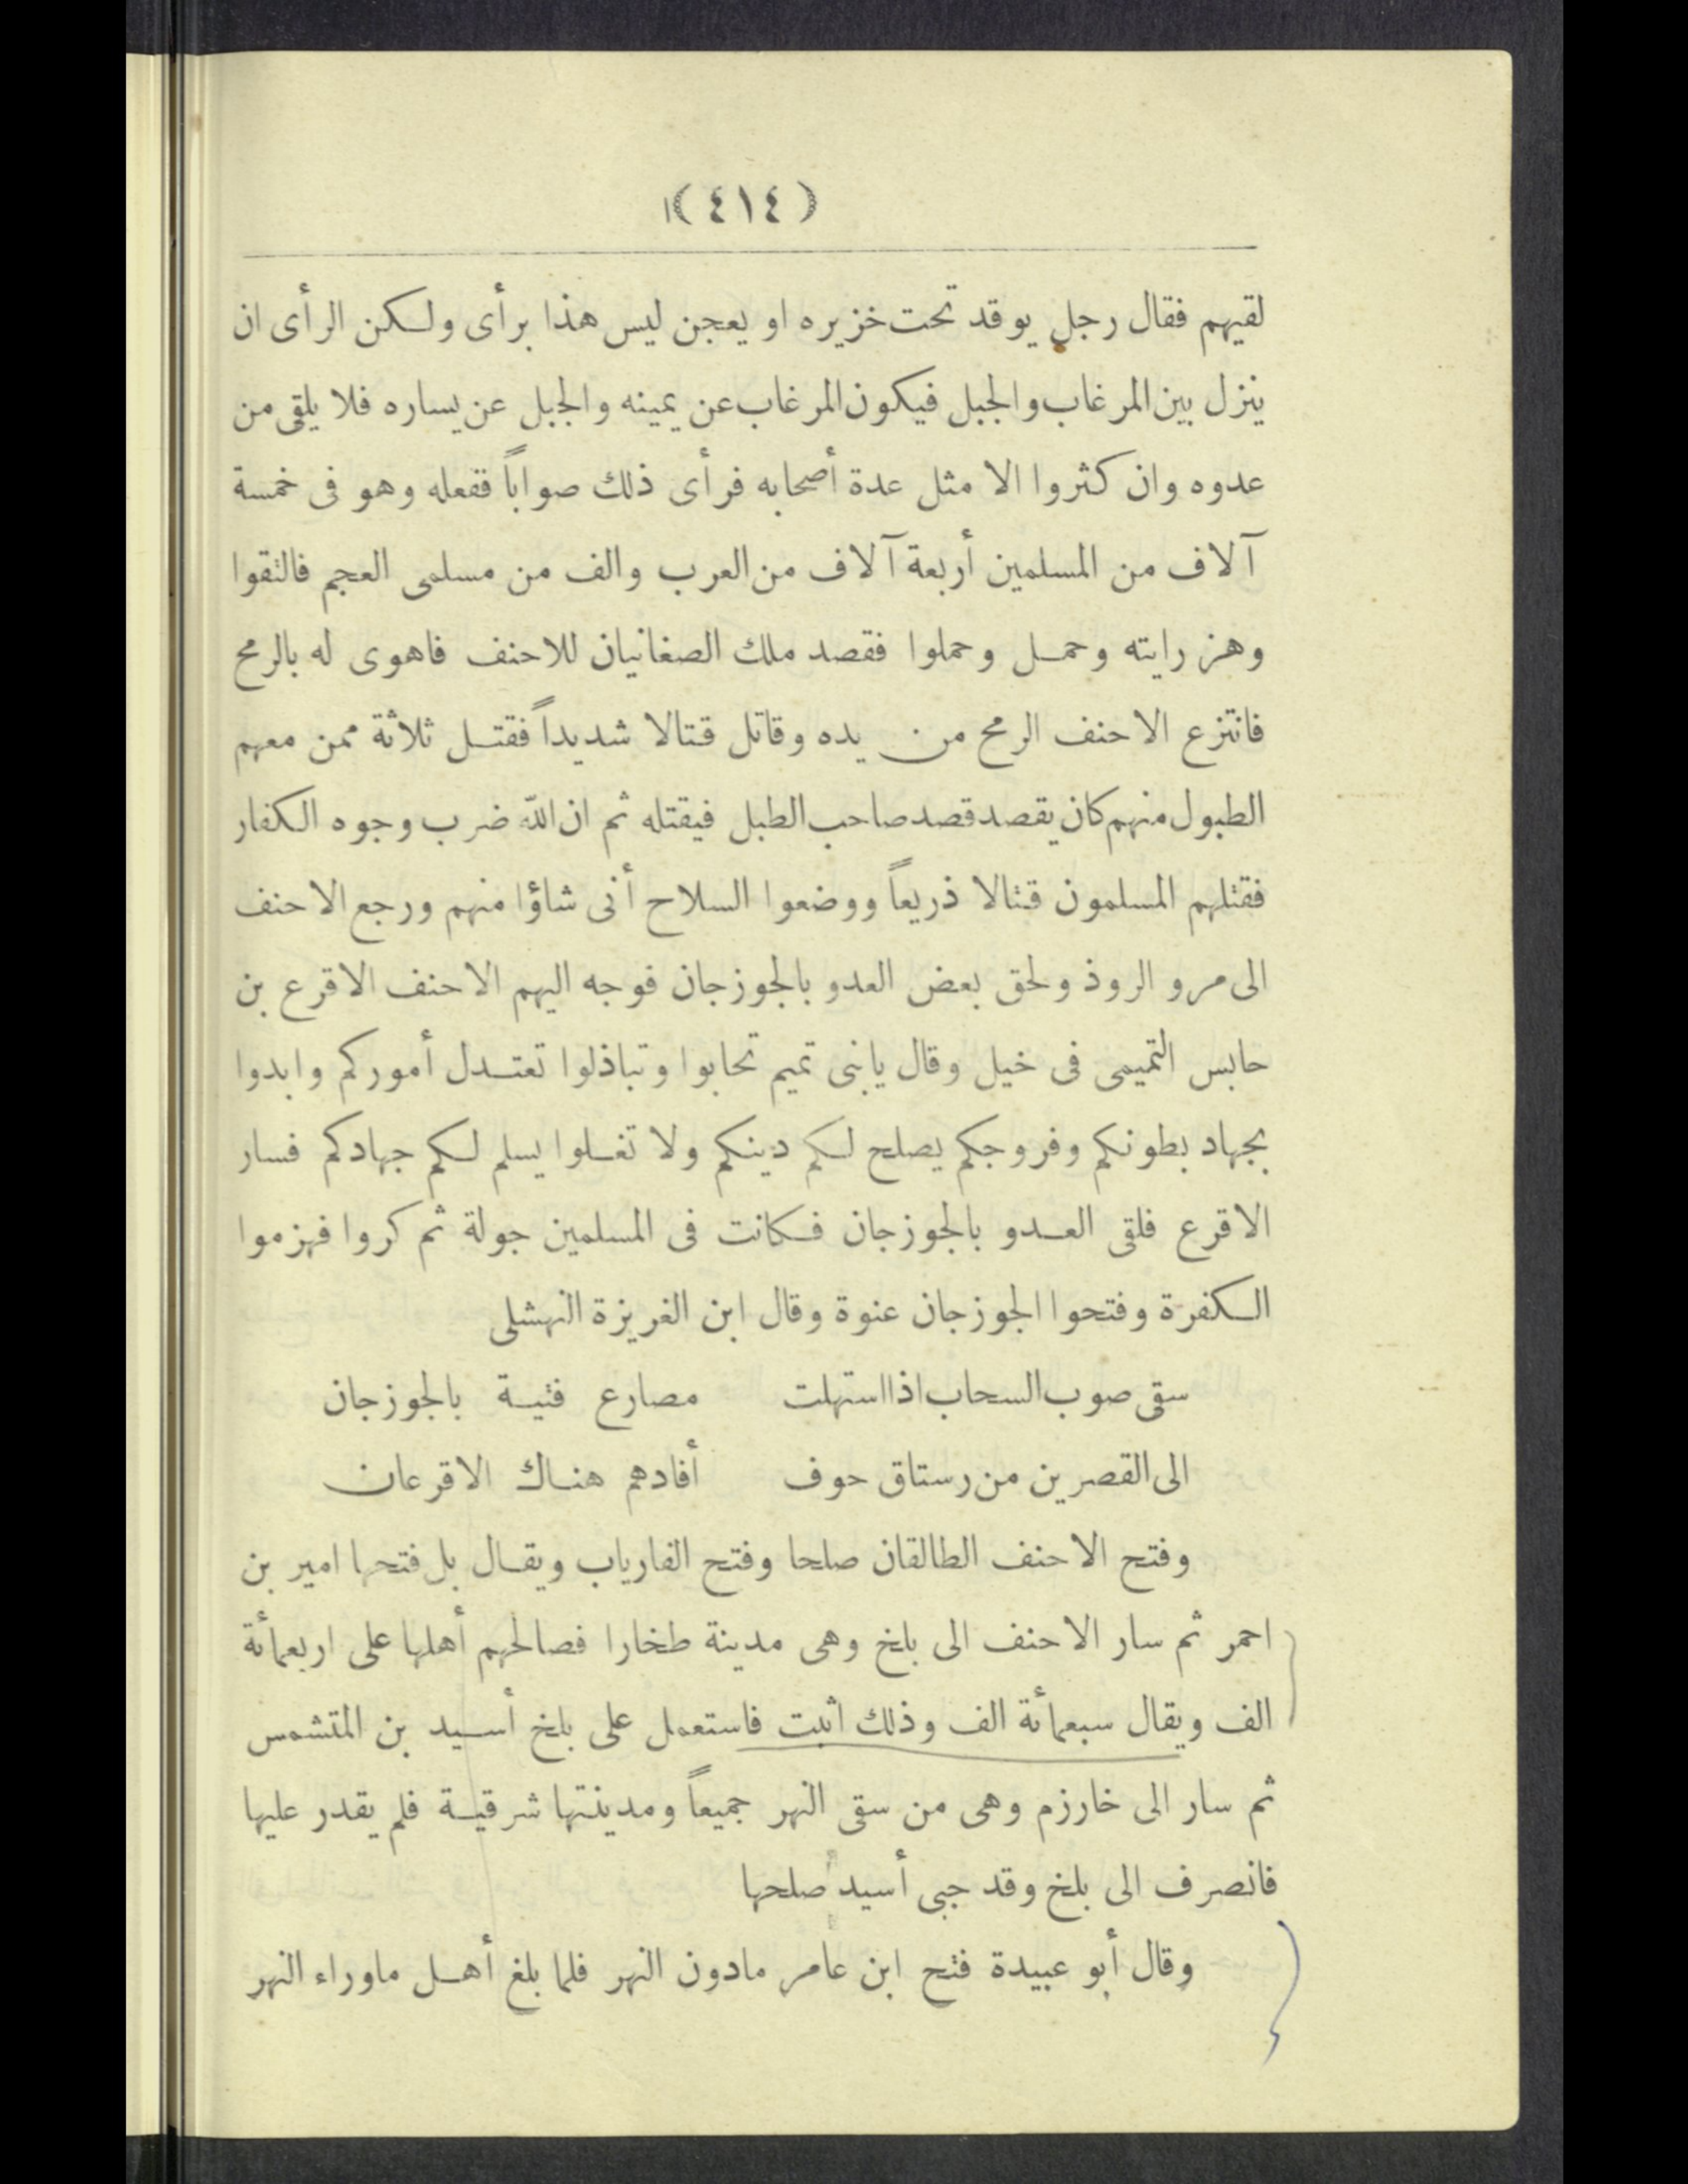 (٤١٤)
لقيهم فقال رجل يوقد تحت خزيره او يعجن ليس هذا برأى ولكن الرأى ان
ينزل بين المرغاب والجبل فيكون المرغاب عن يمينه والجبل عن يساره فلا يلقى من
عدوه وان كثروا الا مثل عدة أصحابه فرأى ذلك صواباً ففعله وهو فى خمسة
آلاف من المسلمين أربعة آلاف من العرب والف من مسلمى العجم فالتقوا
وهز رايته وحمل وحملوا فقصد ملك الصغانيان للاحنف فاهوى له بالرمح
فانتزع الاحنف الرمح من يده وقاتل قتالا شديداً فقتل ثلاثة ممن معهم
الطبول منهم كان يقصد قصد صاحب الطبل فيقتله ثم ان الله ضرب وجوه الكفار
فقتلهم المسلمون قتالا ذريعاً ووضعوا السلاح أنى شاؤا منهم ورجع الاحنف
الى مرو الروذ ولحق بعض العدو بالجوزجان فوجه اليهم الاحنف الاقرع بن
حابس التميمى فى خيل وقال يابنى تميم تحابوا وتباذلوا تعتدل أموركم وابدوا
بجهاد بطونكم وفروجكم يصلح لكم دينكم ولا تغلوا يسلم لكم جهادكم فسار
الاقرع فلقى العدو بالجوزجان فكانت فى المسلمين جولة ثم كروا فهزموا
الكفرة وفتحوا الجوزجان عنوة وقال ابن الغريزة النهشلى
سقى صوب السحاب اذا استهلت مصارع فتية بالجوزجان
الى القصرين من رستاق حوف أفادهم هناك الاقرعان
وفتح الاحنف الطالقان صلحا وفتح الفارياب ويقال بل فتحها امير بن
احمر ثم سار الاحنف الى بلخ وهى مدينة طخارا فصالحهم أهلها على اربعمأئة
الف ويقال سبعمأئة الف وذلك اثبت فاستعمل على بلخ أسيد بن المتشمس
ثم سار الى خارزم وهى من سقى النهر جميعاً ومدينتها شرقية فلم يقدر عليها
فانصرف الى بلخ وقد جبى أسيد صلحها
وقال أبو عبيدة فتح ابن عامر مادون النهر فلما بلغ أهل ماوراء النهر